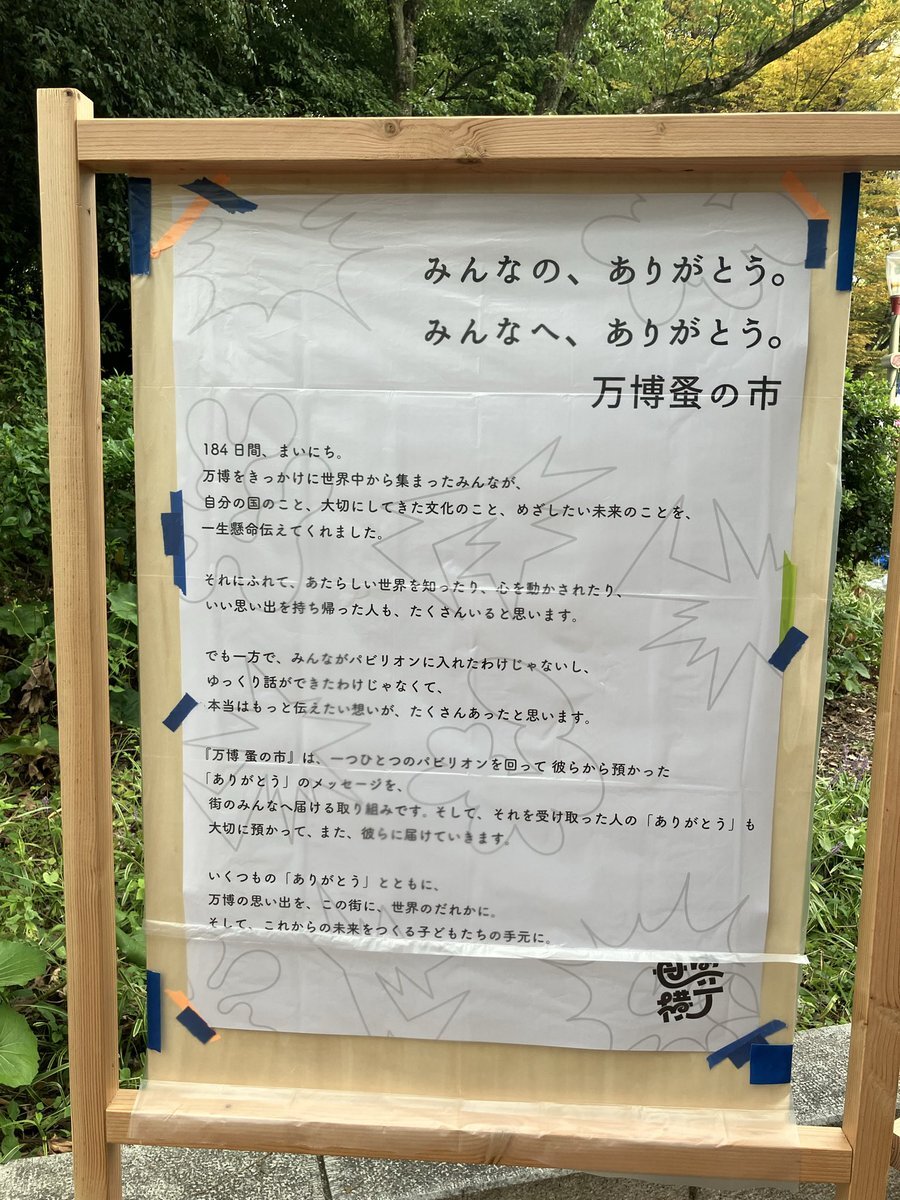 みんなの、ありがとう。
みんなへ、ありがとう。
万博蚤の市
184日間、まいにち。
万博をきっかけに世界中から集まったみんなが、
自分の国のこと、大切にしてきた文化のこと、めざしたい未来のことを、
一生懸命伝えてくれました。
それにふれて、あたらしい世界を知ったり、心を動かされたり、
いい思い出を持ち帰った人も、たくさんいると思います。
でも一方で、みんながパビリオンに入れたわけじゃないし、
ゆっくり話ができたわけじゃなくて、
本当はもっと伝えたい想いが、たくさんあったと思います。
『万博 蚤の市』は、一つひとつのパビリオンを回って 彼らから預かった
「ありがとう」のメッセージを、
街のみんなへ届ける取り組みです。そして、それを受け取った人の「ありがとう」も
大切に預かって、また、彼らに届けていきます。
いくつもの「ありがとう」とともに、
万博の思い出を、この街に、世界のだれかに。
そして、これからの未来をつくる子どもたちの手元に。
横丁